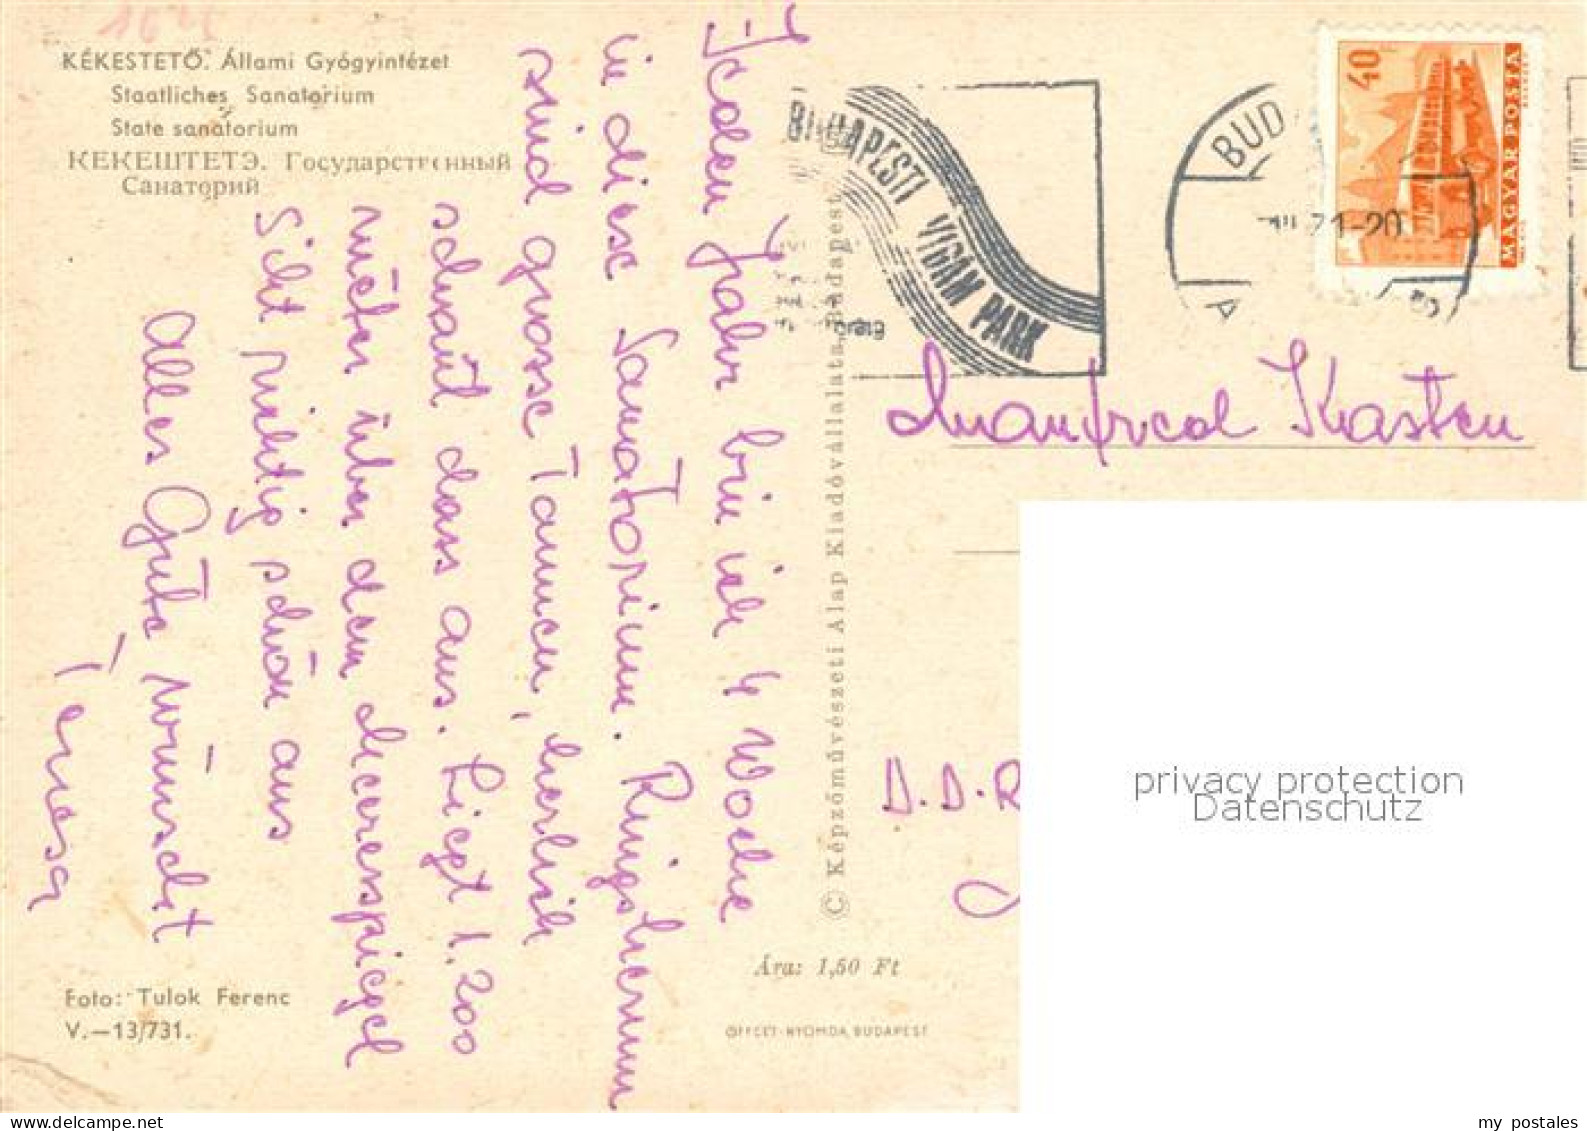 KÉKESTETŐ. Állami Gyógyintézet
Staatliches Sanatorium
State sanatorium
КЕКЕШТЕТЭ. Государственный
Санаторий
Jedem Jahr bin ich 4 Woche
in diese Sanatorium. Ringsherum
sind grosse Tannen, herrlich
schaut dass aus. Liegt 1.200
méter über dem Meeresspiegel
Siht richtig schön aus
Alles Gute wünscht
Teresa
Foto: Tulok Ferenc
V.—13/731.
© Képzőművészeti Alap Kiadóvállalata, Budapest
Ára: 1,50 Ft
OFFSET-NYOMDA, BUDAPEST
BUDAPESTI VIGAM PARK
BUD
71-20
40
MAGYAR POSTA
Manfred Kasten
D.D.R
privacy protection
Datenschutz
my postales